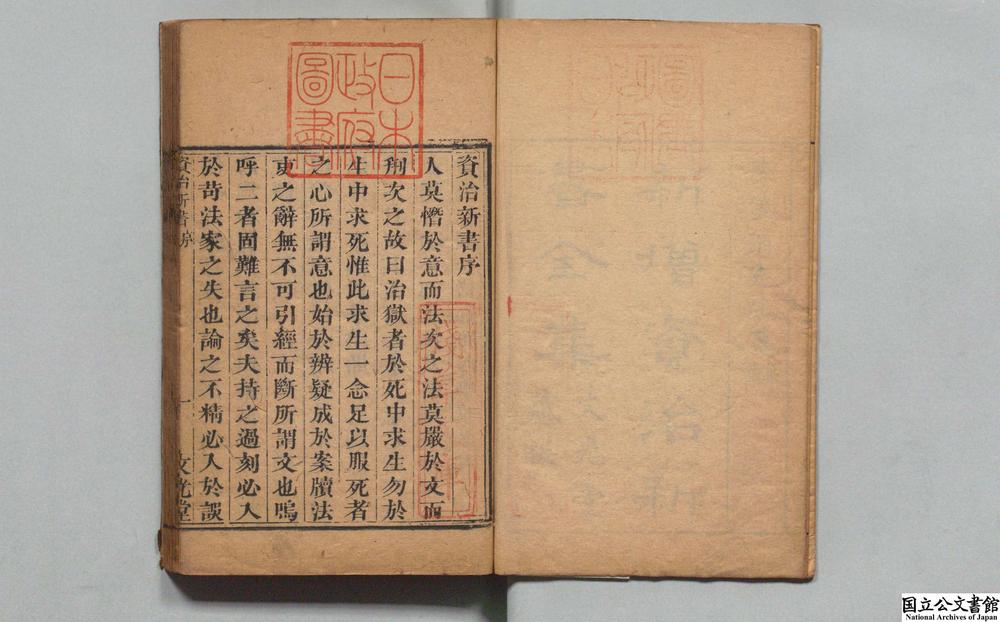 資治新書序
人莫憯於意而法次之法莫嚴於文而
刑次之故曰治獄者於死中求生勿於
生中求死惟此求生一念足以服死者
之心所謂意也始於辨疑成於案牘法
吏之辭無不可引經而斷所謂文也嗚
呼二者固難言之矣夫持之過刻必入
於苛法家之失也論之不精必入於誤
資治新書 序
一
文光堂
日本
政府
圖書
国立公文書館
National Archives of Japan